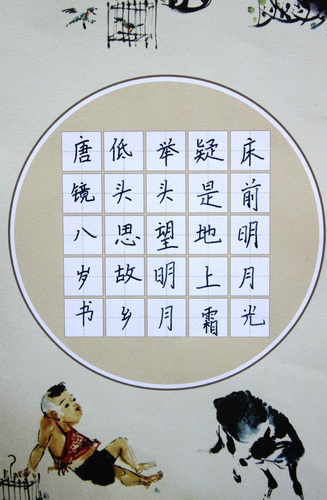 床前明月光
疑是地上霜
举头望明月
低头思故乡
唐镜八岁书